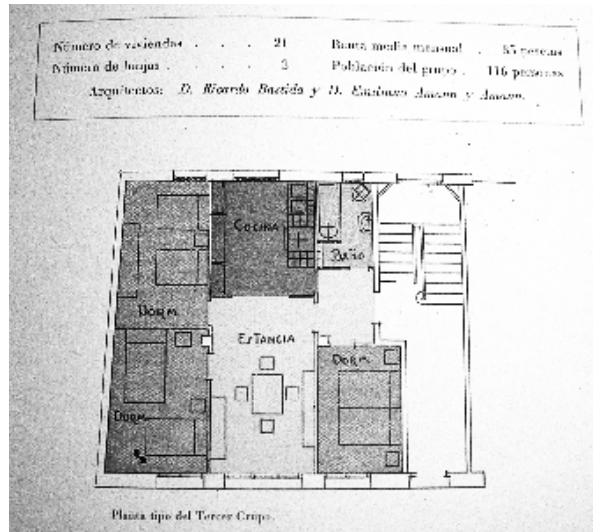 Número de viviendas . . . 21 Renta media mensual . 85 pesetas
Número de lonjas . . . 3 Población del grupo . 116 personas
Arquitectos: D. Ricardo Bastida y D. Emiliano Amann y Amann.
COCINA
BAÑO
DORM.
ESTANCIA
DORM.
DORM.
Planta tipo del Tercer Grupo.